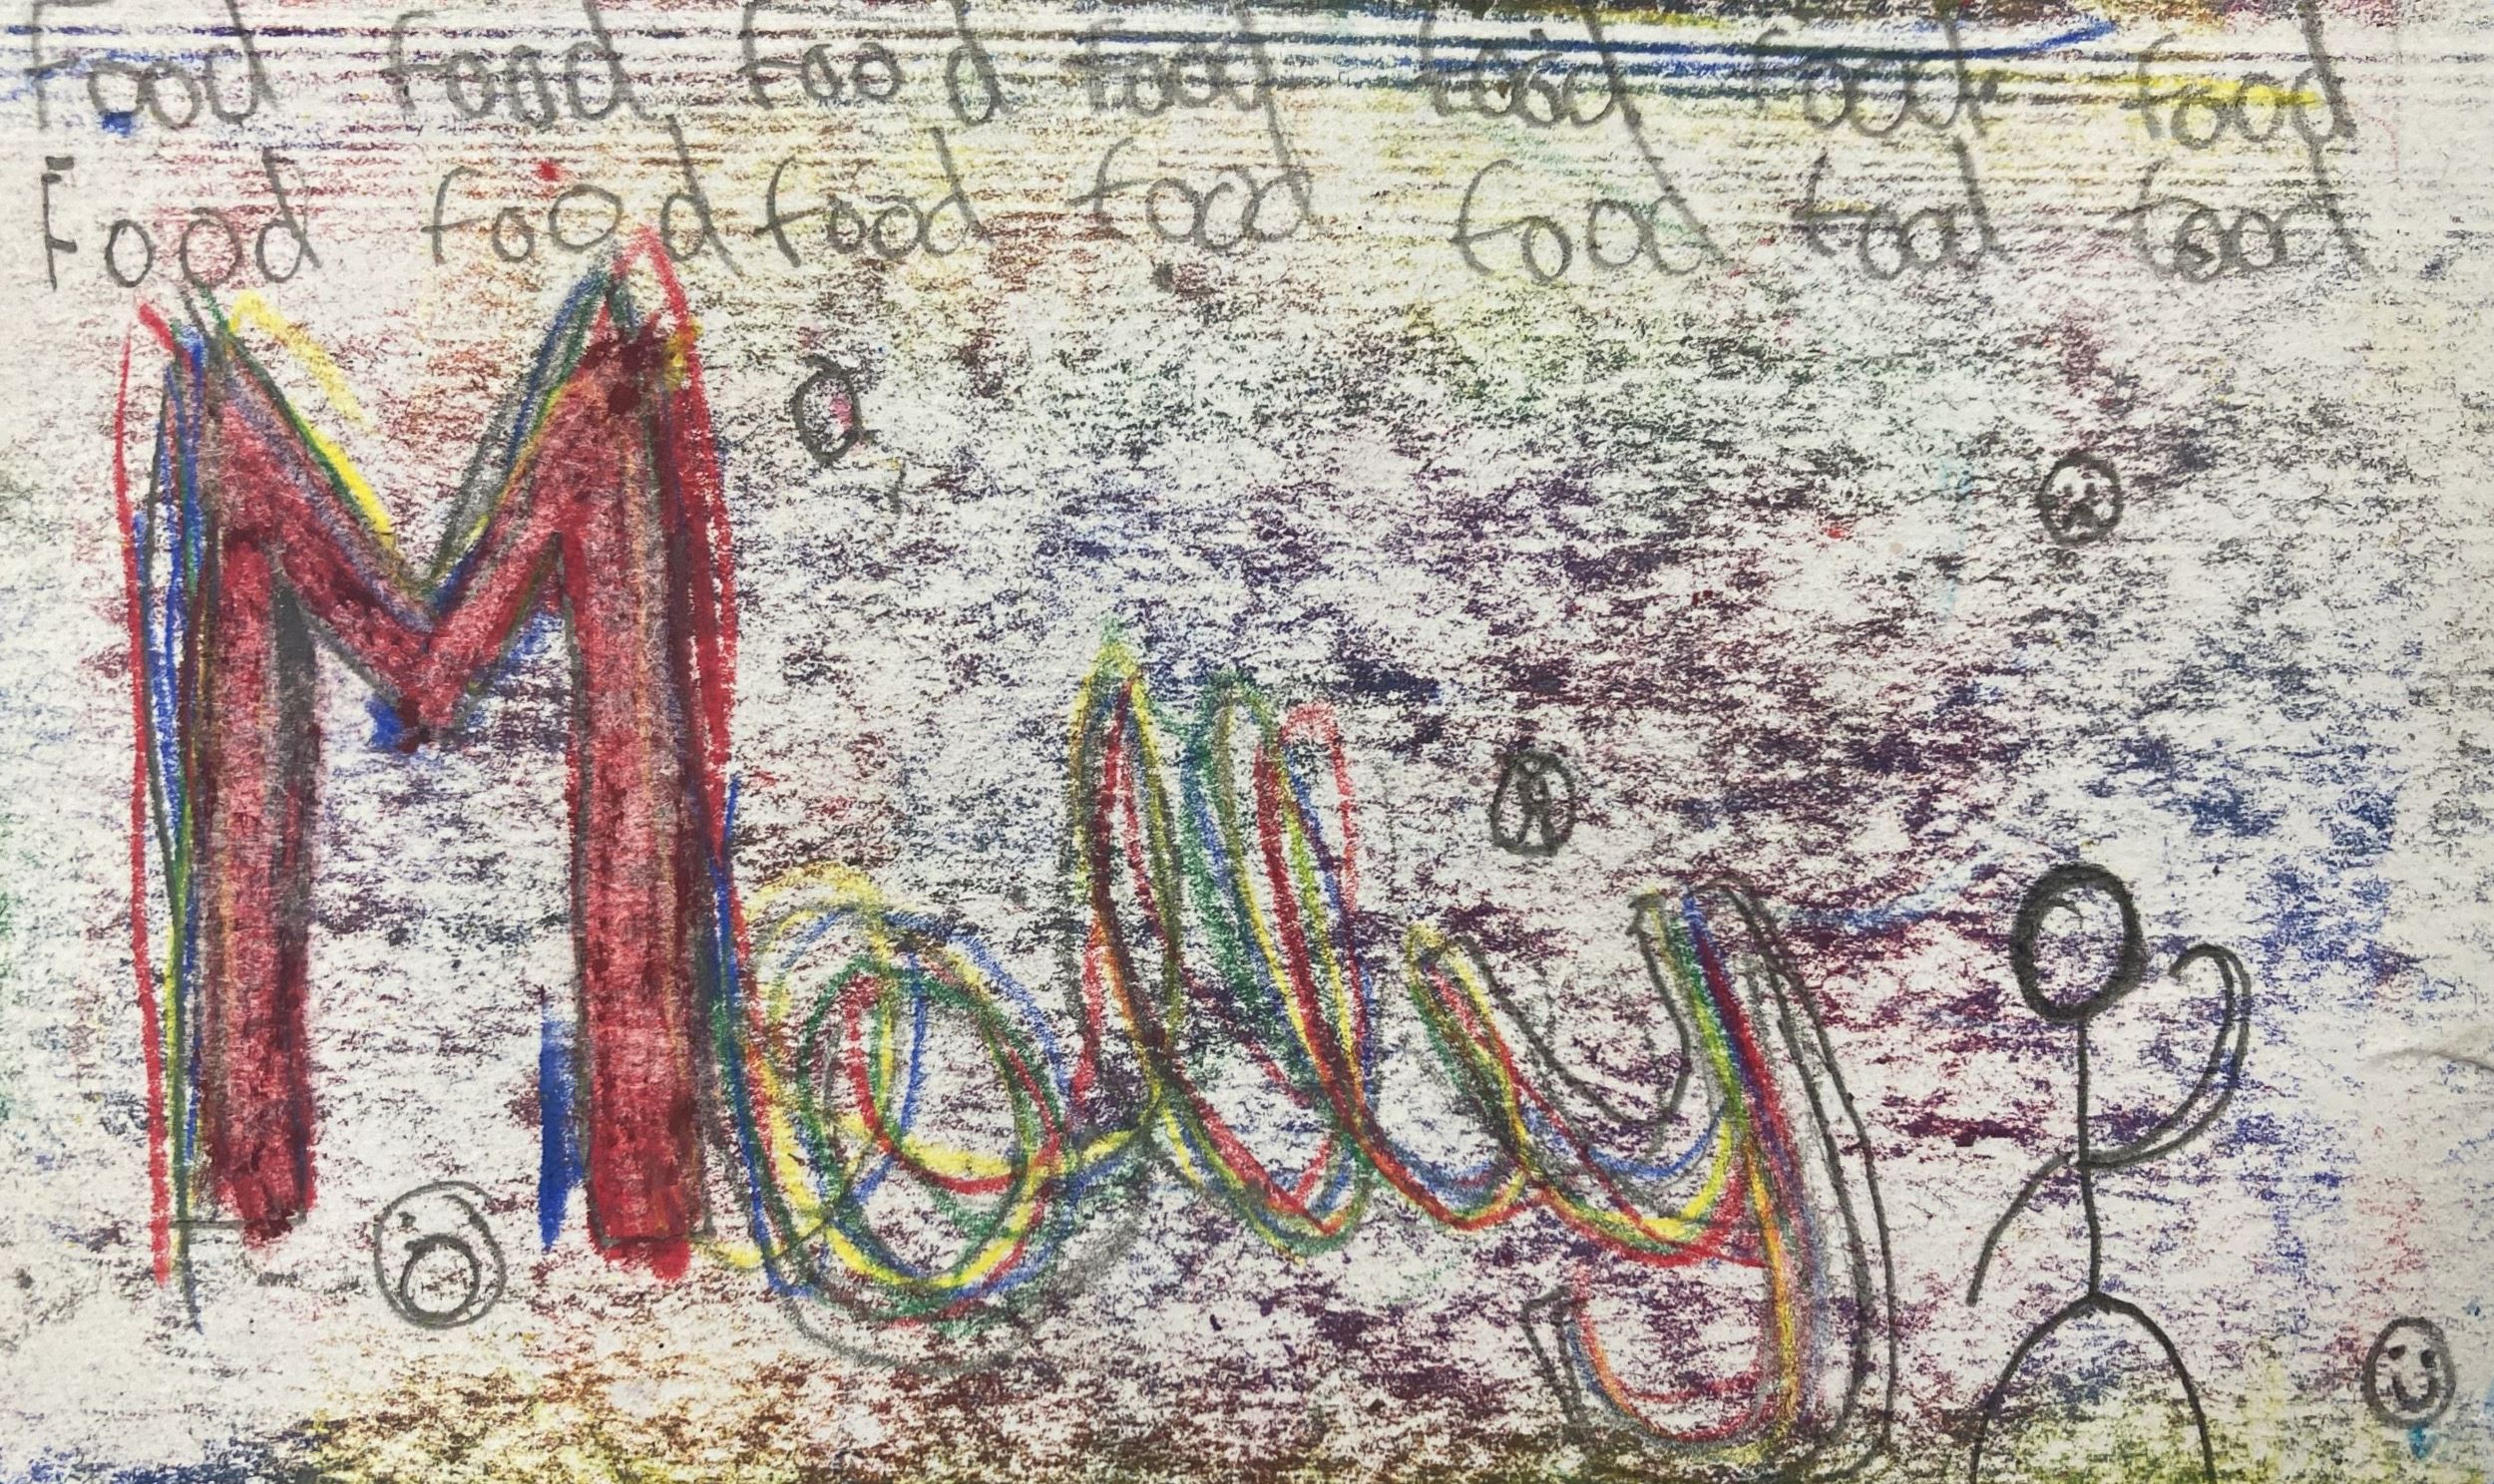 Food food food food food food food
Food food food food food food food
Molly